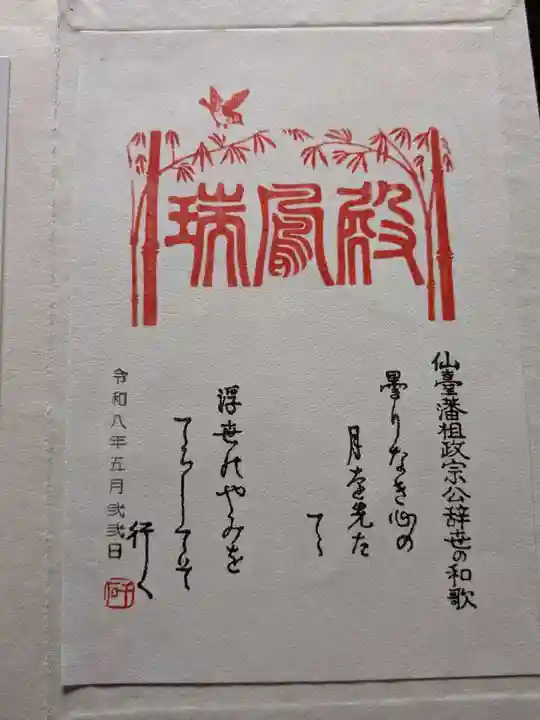 瑞鳳殿
仙臺藩祖政宗公辞世の和歌
曇りなき心の
月を先だ
てゝ
浮世のやみを
てらしてぞ
行く
令和八年五月弐弐日